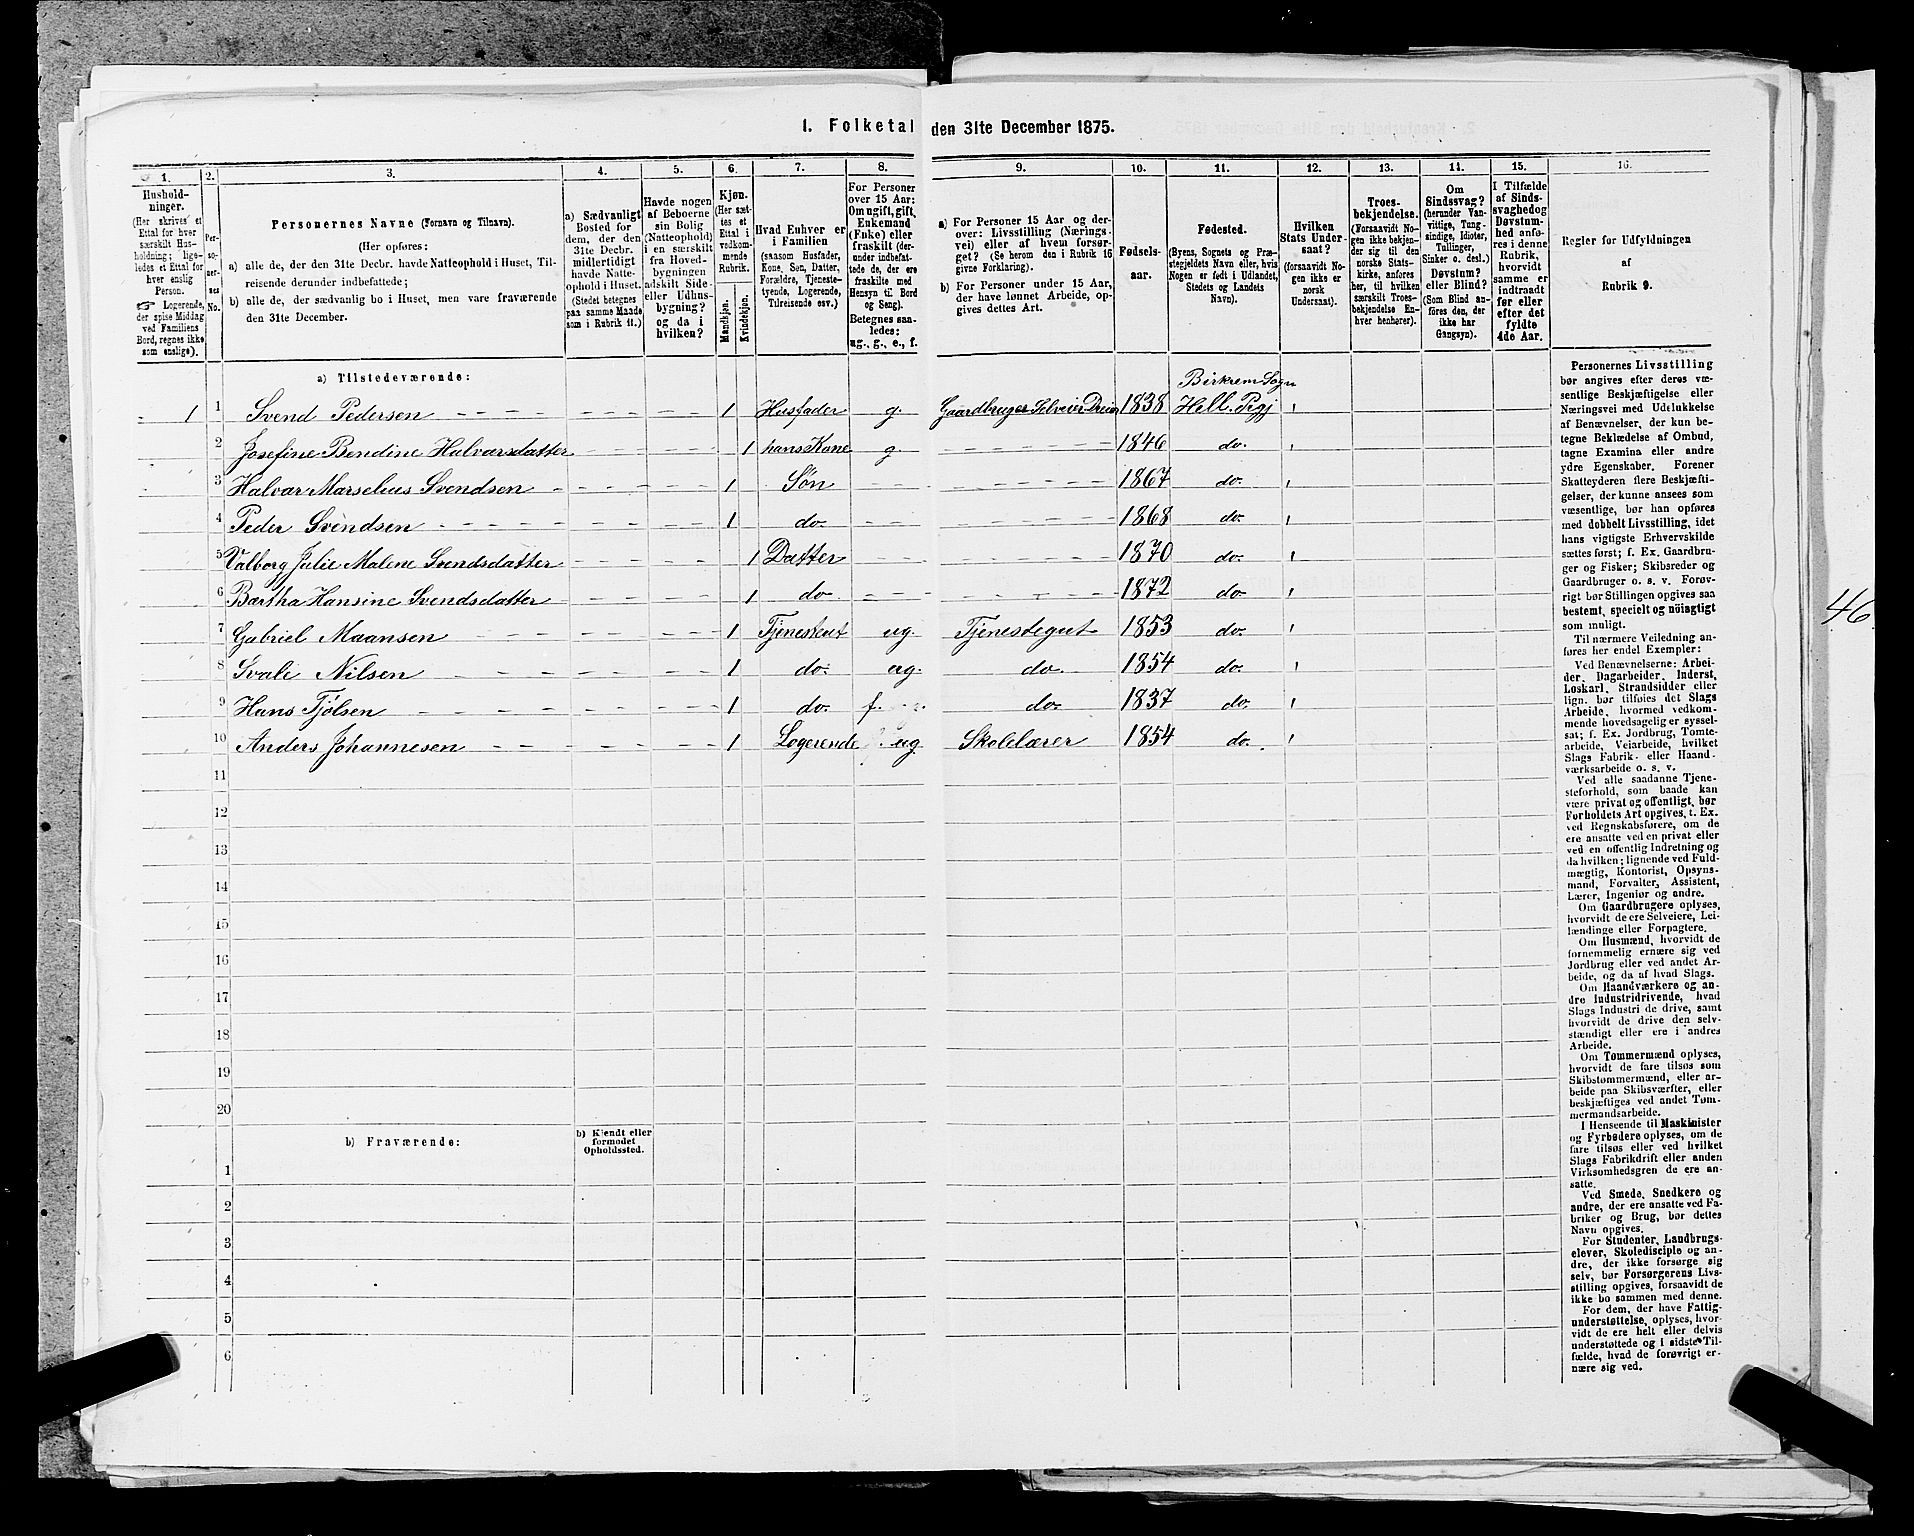 1. Folketal den 31te December 1875.
1. 2. 3. 4. 5. 6. 7. 8. 9. 10. 11. 12. 13. 14. 15. 16.
Hushold-
ninger.
(Her skrives et
Ettal for hver
særskilt Hus-
holdning; lige-
ledes et Ettal for
hver enslig
Person.
☞ Logerende,
der spise Middag
ved Familiens
Bord, regnes ikke
som enslige).
Per-
so-
ner-
nes
No.
Personernes Navne (Fornavn og Tilnavn).
(Her opføres:
a) alle de, der den 31te Decbr. havde Natteophold i Huset, Til-
reisende derunder indbefattede;
b) alle de, der sædvanlig bo i Huset, men vare fraværende
den 31te December.
a) Sædvanligt
Bosted for
dem, der den
31te Decbr.
midlertidigt
havde Natte-
ophold i Huset.
(Stedet betegnes
paa samme Maade
som i Rubrik 11.)
Havde nogen
af Beboerne
sin Bolig
(Natteophold)
i en særskilt
fra Hoved-
bygningen
adskilt Side-
eller Udhus-
bygning?
og da i
hvilken?
Kjøn.
(Her sæt-
tes et
Ettal i
vedkom-
mende
Rubrik.
Mandkjøn.
Kvindekjøn.
Hvad Enhver er
i Familien
(saasom Husfader,
Kone, Søn, Datter,
Forældre, Tjeneste-
tyende, Logerende,
Tilreisende osv.)
For Personer
over 15 Aar:
Om ugift, gift,
Enkemand
(Enke) eller
fraskilt (der-
under indbefat-
tede de, der ere
fraskilte med
Hensyn til Bord
og Seng).
Betegnes saa-
ledes:
ug., g., e., f.
a) For Personer 15 Aar og der-
over: Livsstilling (Nærings-
vei) eller af hvem forsør-
get? (Se herom den i Rubrik 16
givne Forklaring).
b) For Personer under 15 Aar,
der have lønnet Arbeide, op-
gives dettes Art.
Fødsels-
aar.
Fødested.
(Byens, Sognets og Præ-
stegjeldets Navn eller, hvis
Nogen er født i Udlandet,
Stedets og Landets
Navn).
Hvilken
Stats Under-
saat?
(forsaavidt No-
gen ikke er
norsk
Undersaat).
Troes-
bekjendelse.
(Forsaavidt No-
gen ikke bekjen-
der sig til den
norske Stats-
kirke, anføres
her, til hvilken
særskilt Troes-
bekjendelse En-
hver henhører).
Om
Sindssvag?
(herunder Van-
vittige, Tung-
sindige, Idioter,
Tullinger,
Sinker o. desl.)
Døvstum?
eller Blind?
(Som Blind an-
føres den, der
ikke har
Gangsyn).
I Tilfælde
af Sinds-
svaghed og
Døvstum-
hed anfø-
res i denne
Rubrik,
hvorvidt
samme er
indtraadt
før eller
efter det
fyldte
4de Aar.
Regler for Udfyldningen
af
Rubrik 9.
a) Tilstedeværende:
Birkrem Sogn
1 1 Svend Pedersen 1 Husfader g. Gaardbruger Selveier 1838 Hell. Prgj
2 Josefine Bendine Halvarsdatter 1 hans Kone g. 1846 do.
3 Halvar Marselius Svendsen 1 Søn 1867 do.
4 Peder Svendsen 1 do. 1868 do.
5 Valborg Julie Malene Svendsdatter 1 Datter 1870 do.
6 Bartha Hansine Svendsdatter 1 do. 1872 do
7 Gabriel Maansen 1 ug. Tjenestegut 1853 do.
8 Svale Nilsen 1 do. ug. do. 1854 do.
9 Hans Tjølsen 1 do. f. do. 1837 do.
10 Anders Johannesen 1 Logerende ug Skolelærer 1854 do.
11
12
13
14
15
16
17
18
19
20
b) Fraværende:
b) Kjendt eller
formodet
Opholdssted.
1
2
3
4
5
6
Personernes Livsstilling
bør angives efter deres væ-
sentlige Beskjæftigelse eller
Næringsvei med Udelukkelse
af Benævnelser, der kun be-
tegne Beklædelse af Ombud,
tagne Examina eller andre
ydre Egenskaber. Forener
Skatteyderen flere Beskjæfti-
gelser, der kunne ansees som
væsentlige, bør han opføres
med dobbelt Livsstilling, idet
hans vigtigste Erhvervskilde
sættes først; f. Ex. Gaardbru-
ger og Fisker; Skibsreder og
Gaardbruger o. s. v. Forøv-
rigt bør Stillingen opgives saa
bestemt, specielt og nöiagtigt
som muligt.
Til nærmere Veiledning an-
føres her endel Exempler:
Ved Benævnelserne: Arbei-
der, Dagarbeider, Inderst,
Løskarl, Strandsidder eller
lign. bør tilføies det Slags
Arbeide, hvormed vedkom-
mende hovedsagelig er syssel-
sat; f. Ex. Jordbrug, Tomte-
arbeide, Veiarbeide, hvilket
Slags Fabrik- eller Haand-
værksarbeide o. s. v.
Ved alle saadanne Tjene-
steforhold, som baade kan
være privat og offentligt, bør
Forholdets Art opgives, t. Ex.
ved Regnskabsførere, om de
ere ansatte ved en privat eller
ved en offentlig Indretning og
da hvilken; lignende ved Fuld-
mægtig, Kontorist, Opsyns-
mand, Forvalter, Assistent,
Lærer, Ingeniør og andre.
Om Gaardbrugere oplyses,
hvorvidt de ere Selveiere, Lei-
lændinge eller Forpagtere.
Om Husmænd, hvorvidt de
fornemmelig ernære sig ved
Jordbrug eller ved andet Ar-
beide, og da af hvad Slags.
Om Haandværkere og an-
dre Industridrivende, hvad
Slags Industri de drive, samt
hvorvidt de drive den selv-
stændigt eller ere i andres
Arbeide.
Om Tømmermænd oplyses,
hvorvidt de fare tilsøs som
Skibstømmermænd, eller ar-
beide paa Skibsværfter, eller
beskjæftiges ved andet Tøm-
mermandsarbeide.
I Henseende til Maskinister
og Fyrbødere oplyses, om de
fare tilsøs eller ved hvilket
Slags Fabrikdrift eller anden
Virksomhedsgren de ere an-
satte.
Ved Smede, Snedkere og
andre, der ere ansatte ved Fa-
briker og Brug, bør dettes
Navn opgives.
For Studenter, Landbrugs-
elever, Skoledisciple og an-
dre, der ikke forsørge sig
selv, bør Forsørgerens Livs-
stilling opgives, forsaavidt de
ikke bo sammen med denne.
For dem, der have Fattig-
understøttelse, oplyses, hvor-
vidt de ere helt eller delvis
understøttede og i sidste Til-
fælde, hvad de forøvrigt er-
nære sig ved.
46